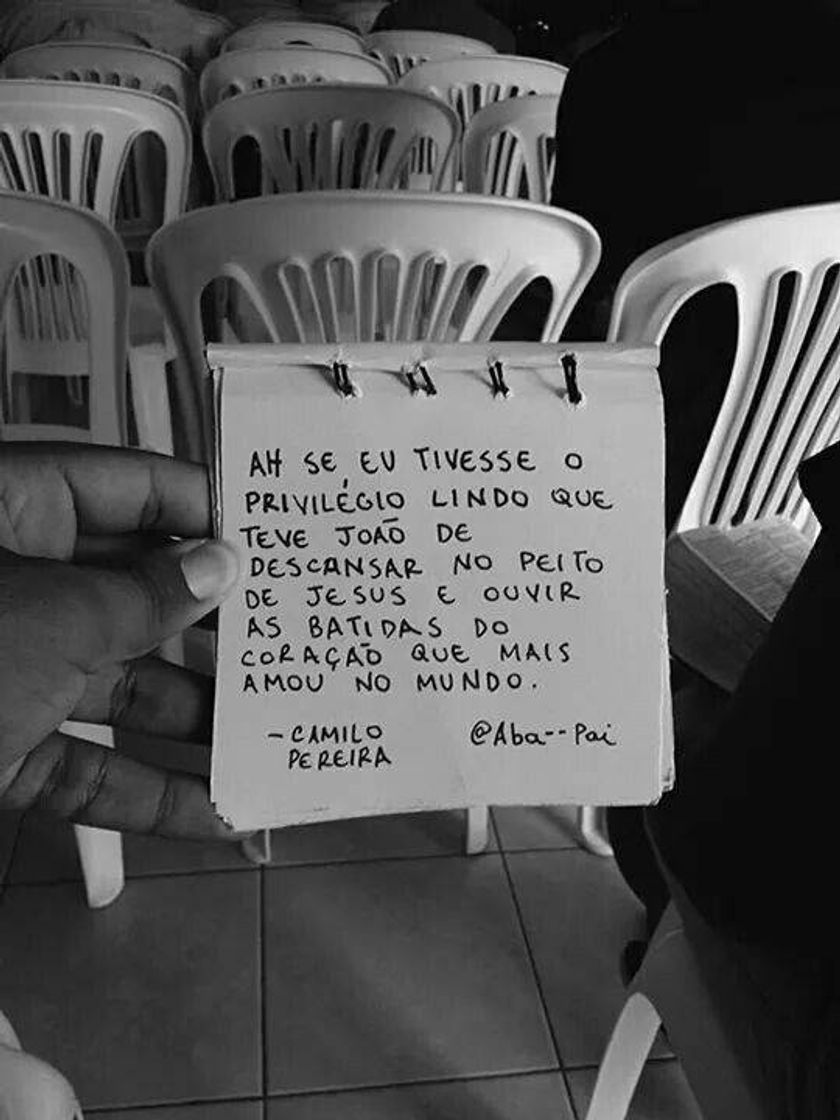 AH SE EU TIVESSE O
PRIVILÉGIO LINDO QUE
TEVE JOÃO DE
DESCANSAR NO PEITO
DE JESUS E OUVIR
AS BATIDAS DO
CORAÇÃO QUE MAIS
AMOU NO MUNDO.
- CAMILO
PEREIRA
@Aba--Pai